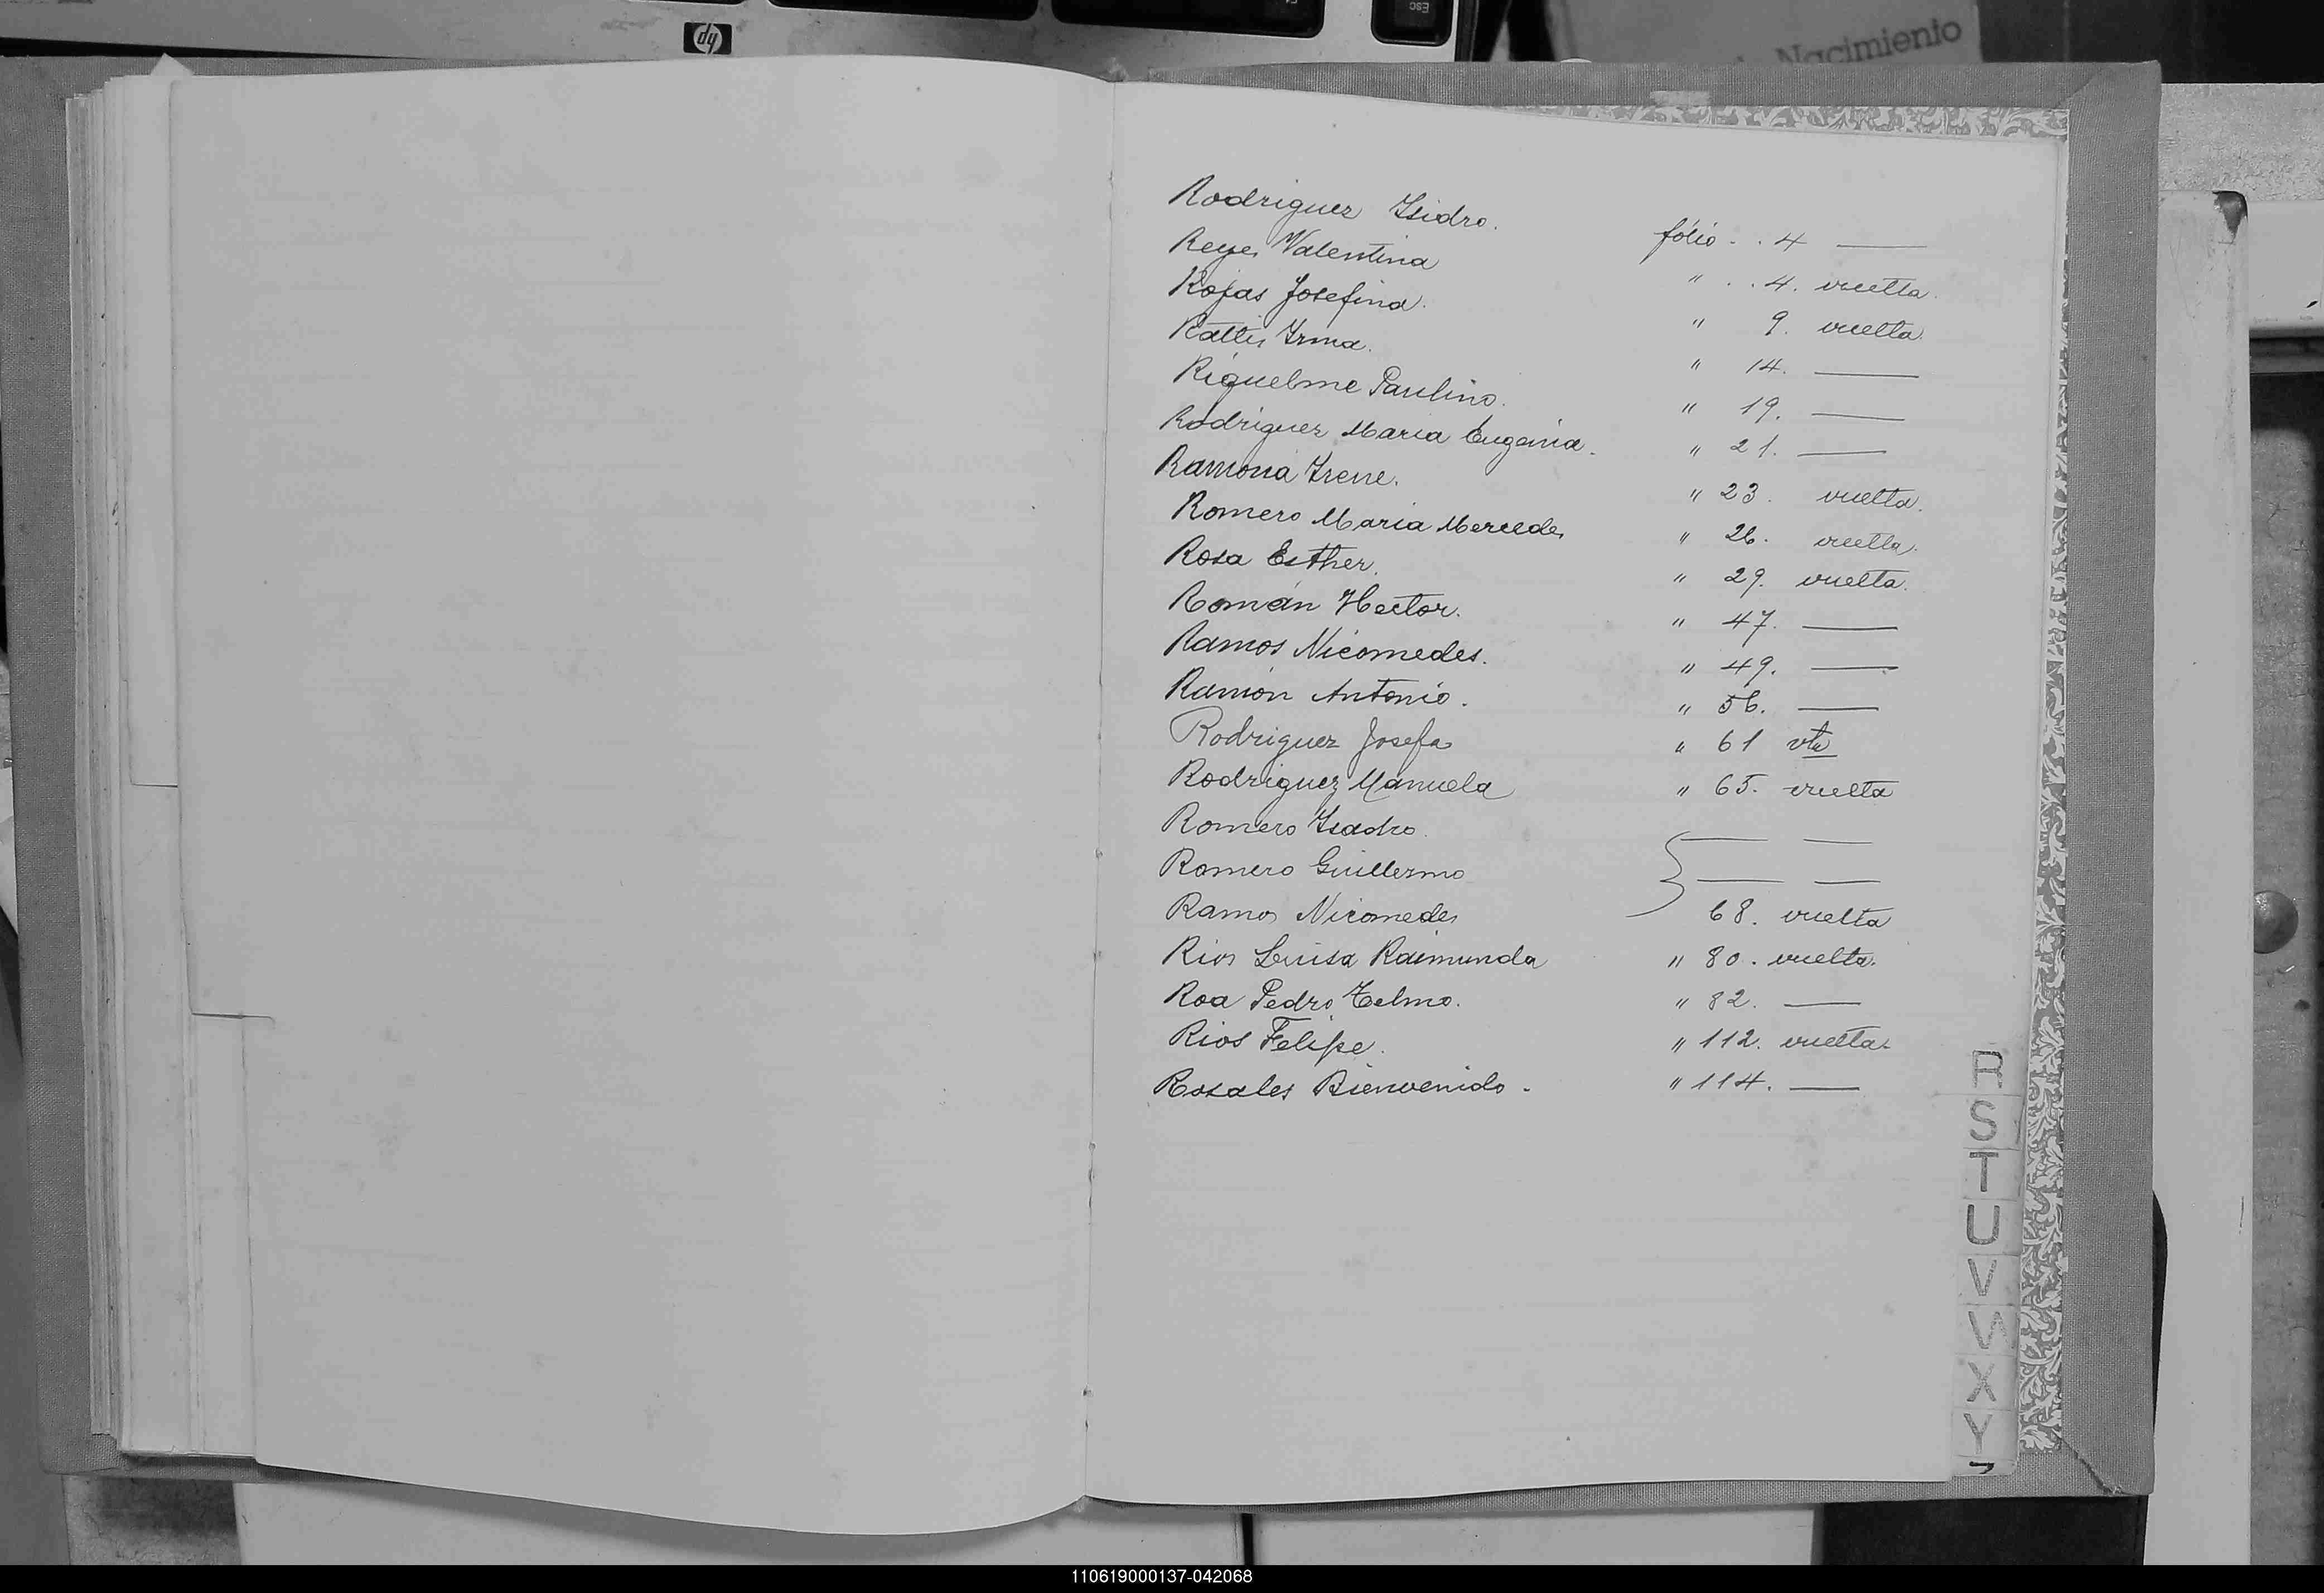 hp
ESC
Nacimiento
Rodriguez Isidro. folio . . 4 ——
Reyes Valentina " . . 4. vuelta.
Rojas Josefina. " 9. vuelta.
Rattis Irma. " 14. ——
Riquelme Paulino. " 19. ——
Rodriguez Maria Eugenia. " 21. ——
Ramona Irene. " 23. vuelta.
Romero Maria Mercedes " 26. vuelta.
Rosa Esther. " 29. vuelta.
Román Hector. " 47. ——
Ramos Nicomedes. " 49. ——
Ramón Antonio. " 56. ——
Rodriguez Josefa " 61 vta
Rodriguez Manuela " 65. vuelta
Romero Isadro. —— ——
Romero Guillermo —— ——
Ramos Nicomedes 68. vuelta
Rios Luisa Raimunda " 80. vuelta.
Roa Pedro Telmo. " 82. ——
Rios Felipe. " 112. vuelta.
Rosales Bienvenido. " 114. ——
R
S
T
U
V
W
X
Y
110619000137-042068